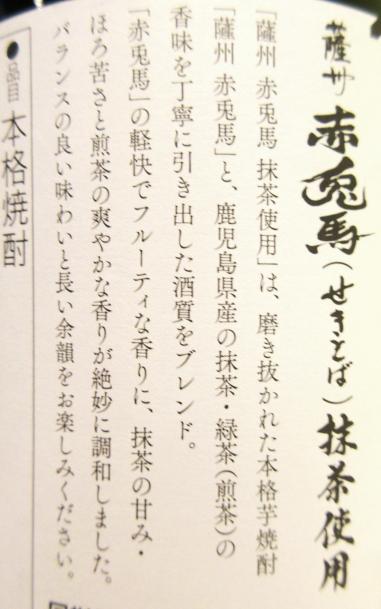 薩州 赤兎馬(せきとば)抹茶使用
「薩州 赤兎馬 抹茶使用」は、磨き抜かれた本格芋焼酎
「薩州 赤兎馬」と、鹿児島県産の抹茶・緑茶(煎茶)の
香味を丁寧に引き出した酒質をブレンド。
「赤兎馬」の軽快でフルーティな香りに、抹茶の甘み・
ほろ苦さと煎茶の爽やかな香りが絶妙に調和しました。
バランスの良い味わいと長い余韻をお楽しみください。
●品目 本格焼酎